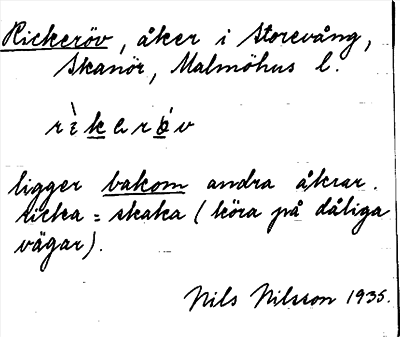 Rickeröv, åker i Storevång,
Skanör, Malmöhus l.
rìkərö́v
ligger bakom andra åkrar.
ricka = skaka (köra på dåliga
vägar).
Nils Nilsson 1935.